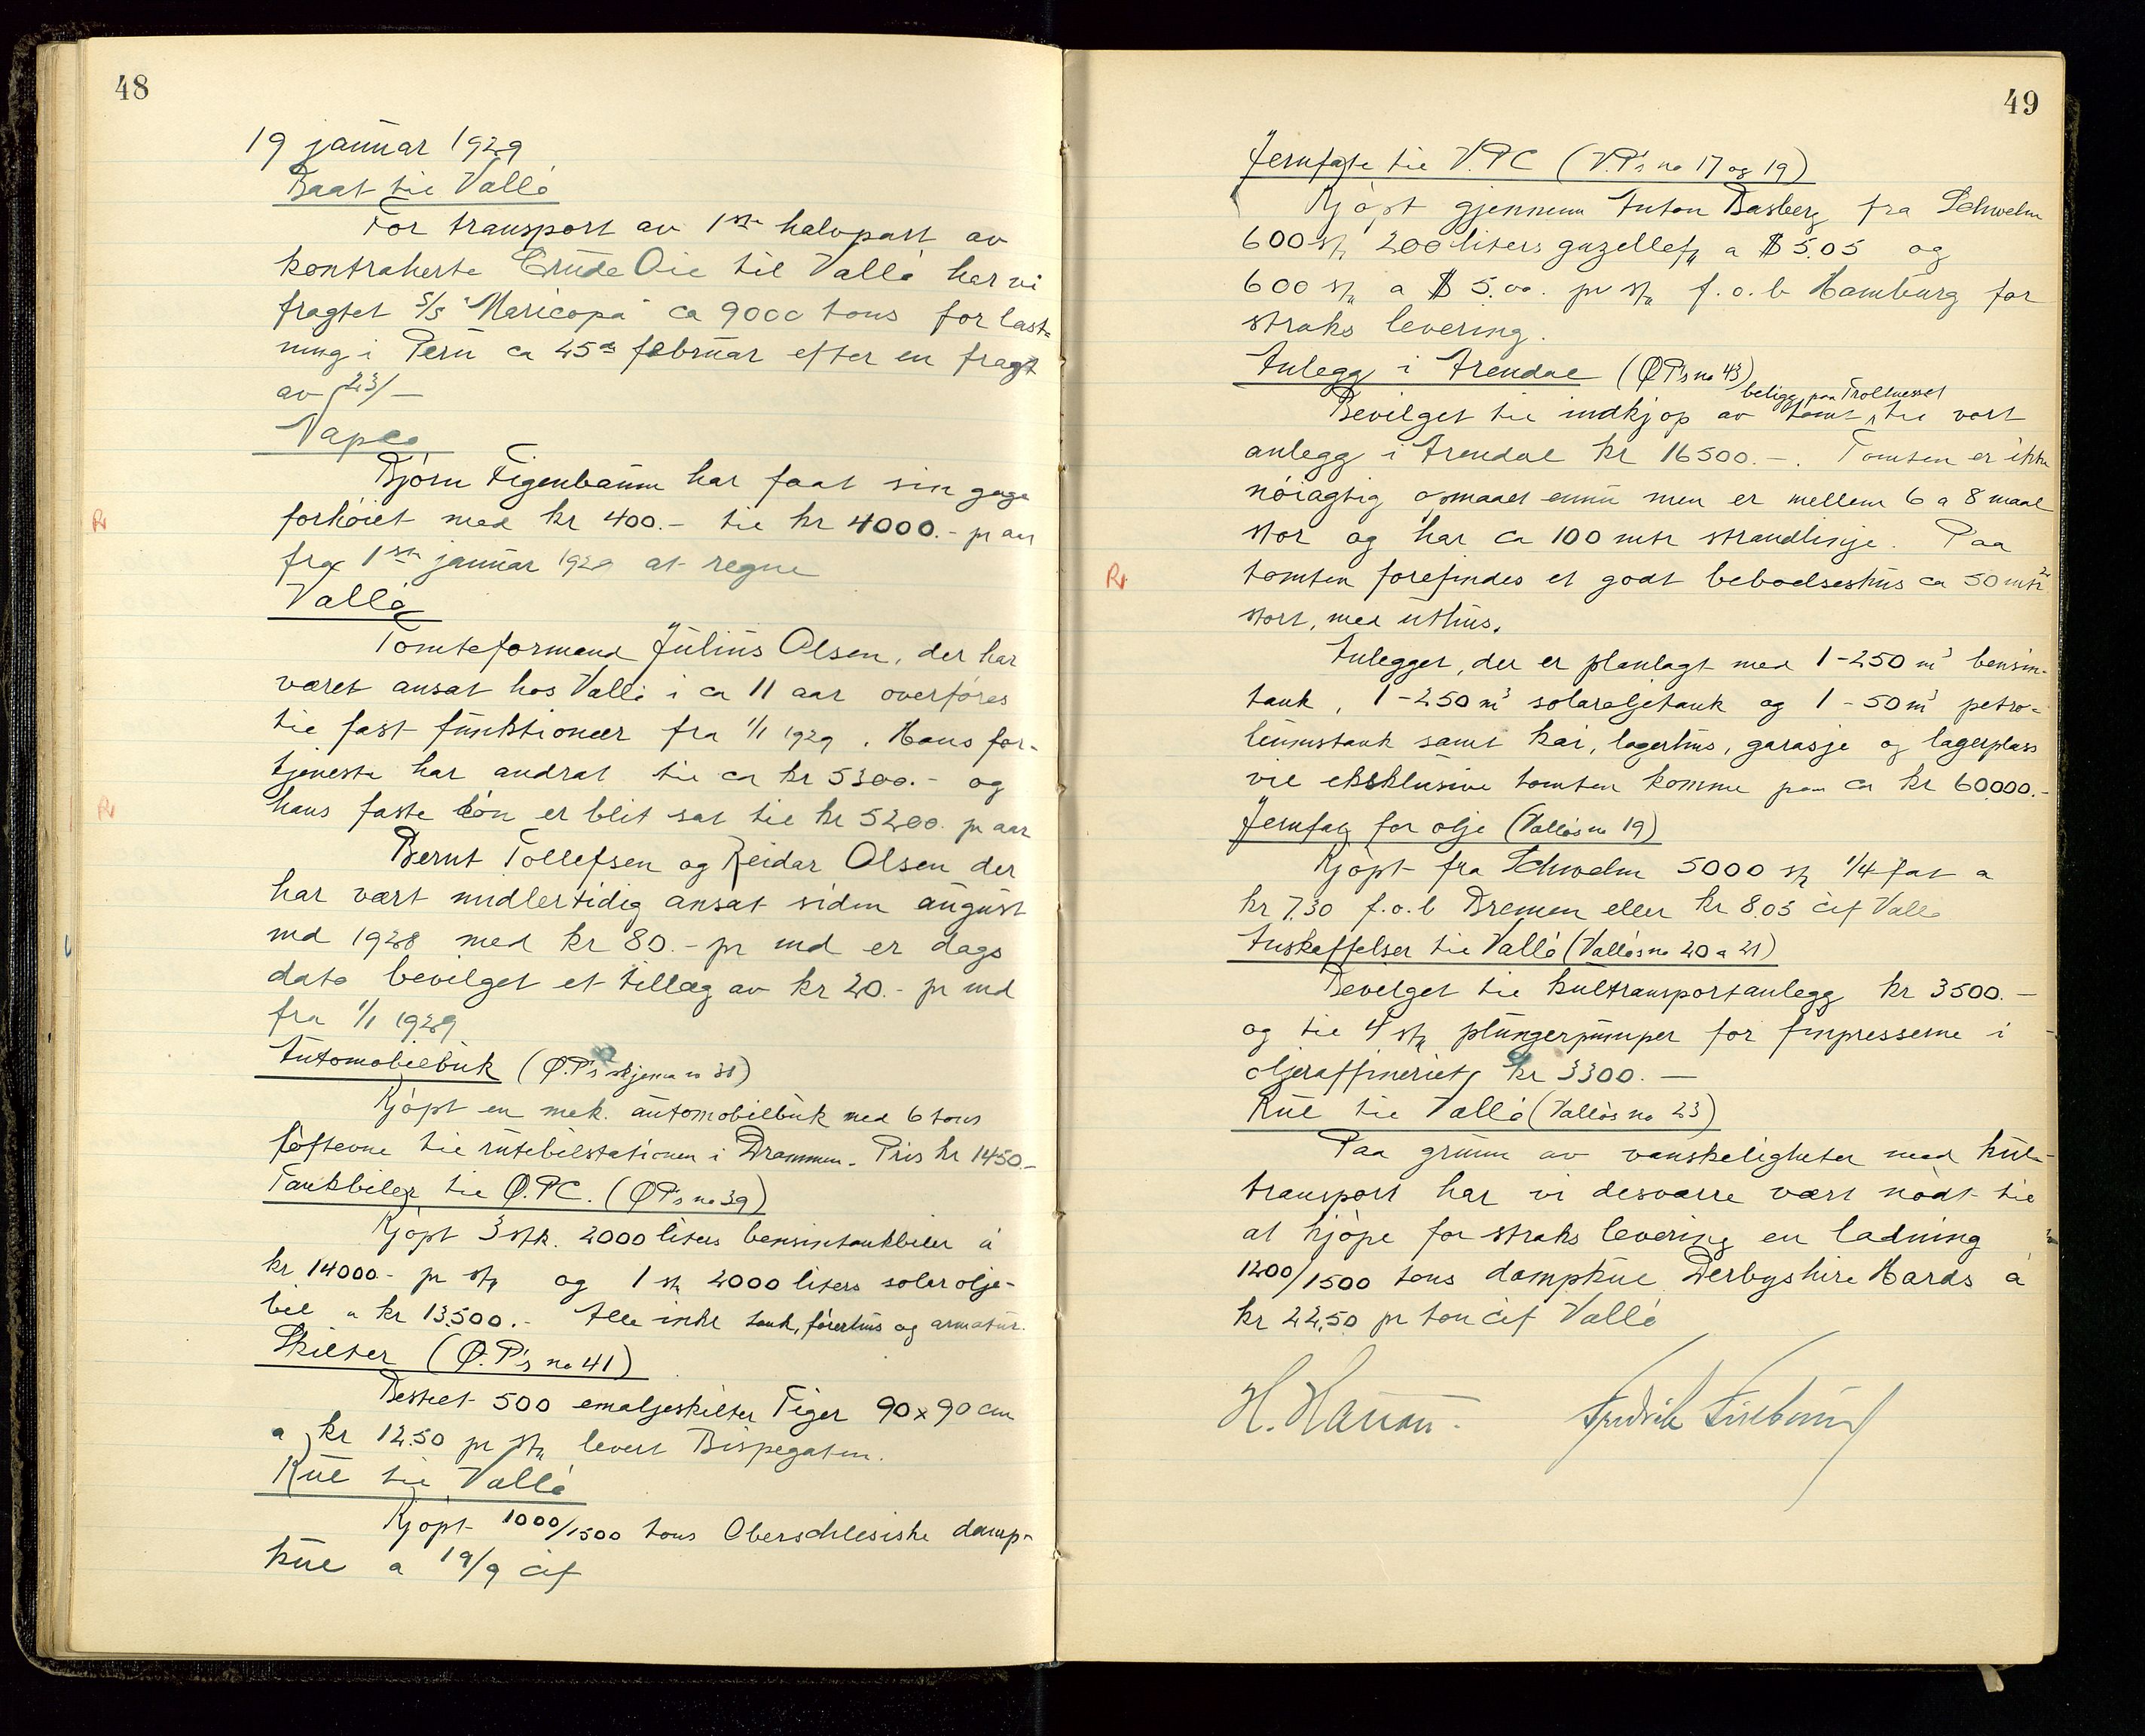 48
19 januar 1929
Baat til Valló
For transport av 1ste halvpart av
kontraherte Crude Oil til Valló har vi
fragtet S/S "Maricopa" ca 9000 tons for last-
ning i Peru ca 25de februar efter en fragt
av 23/-
Vapco
Bjørn Figenbaum har faat sin gage
forhöiet med kr 400.- til kr 4000.- pr aar
fra 1ste januar 1929 at regne
Valló
Tomteformand Julius Olsen, der har
været ansat hos Valló i ca 11 aar overföres
til fast funktionær fra 1/1 1929. Hans for-
tjeneste har andrat til ca kr 5300.- og
hans faste lön er blit sat til kr 5200. pr aar
Bernt Tollefsen og Reidar Olsen der
har vært midlertidig ansat siden august
md 1928 med kr 80.- pr md er dags
dato bevilget et tillæg av kr 20.- pr md
fra 1/1 1929
Automobilbuk (Ø.P's skjema no 38)
Kjöpt en mek. automobilbuk med 6 tons
löfteevne til rutebilstationen i Drammen. Pris kr 1450.-
Tankbiler til Ø.P.C. (ØP's no 39)
Kjöpt 3 stk. 2000 liters bensintankbiler á
kr 14000.- pr stk og 1 stk 2000 liters solarolje-
bil a kr 13.500.- Alle inkl tank, förerhus og armatur.
Skilter (Ø.P's no 41)
Bestilt 500 emaljeskilter Tiger 90 x 90 cm
a kr 12.50 pr stk levert Bispegaten.
Kul til Valló
Kjöpt 1000/1500 tons Oberschlesiske damp-
kul a 19/9 cif
49
Jernfate til V.P.C (V.P's no 17 og 19)
Kjöpt gjennem Anton Basberg fra Schwelm
600 stk 200 liters gazellef. a $ 5.05 og
600 stk a $ 5.00. pr stk f.o.b Hamburg for
straks levering.
Anlegg i Arendal (ØP's no 43)
beligg. paa Trollnesset
Bevilget til indkjöp av tomt til vort
anlegg i Arendal kr 16500.-. Tomten er ikke
nöiagtig opmaalt ennu men er mellem 6 a 8 maal
stor og har ca 100 mtr strandlinje. Paa
tomten forefindes et godt beboelseshus ca 50 mtr2
stort, med uthus.
Anlegget, der er planlagt med 1-250 m3 bensin-
tank, 1-250 m3 solaroljetank og 1-50 m3 petro-
leumstank samt kai, lagerhus, garasje og lagerplass
vil eksklusive tomten komme paa ca kr 60.000.-
Jernfat for olje (Vallós no 19)
Kjöpt fra Schwelm 5000 stk 1/4 fat a
kr 7.30 f.o.b Bremen eller kr 8.05 cif Valló
Anskaffelser til Valló (Vallós no 20 a 21)
Bevilget til kultransportanlegg kr 3500.-
og til 4 stk plungerpumper for finpresserne i
oljeraffineriet kr 3300.-
Kul til Valló (Vallós no 23)
Paa grunn av vanskeligheter med kul-
transport har vi desværre vært nödt til
at kjöpe for straks levering en ladning
1200/1500 tons dampkul Derbyshire Hards á
kr 22.50 pr ton cif Valló